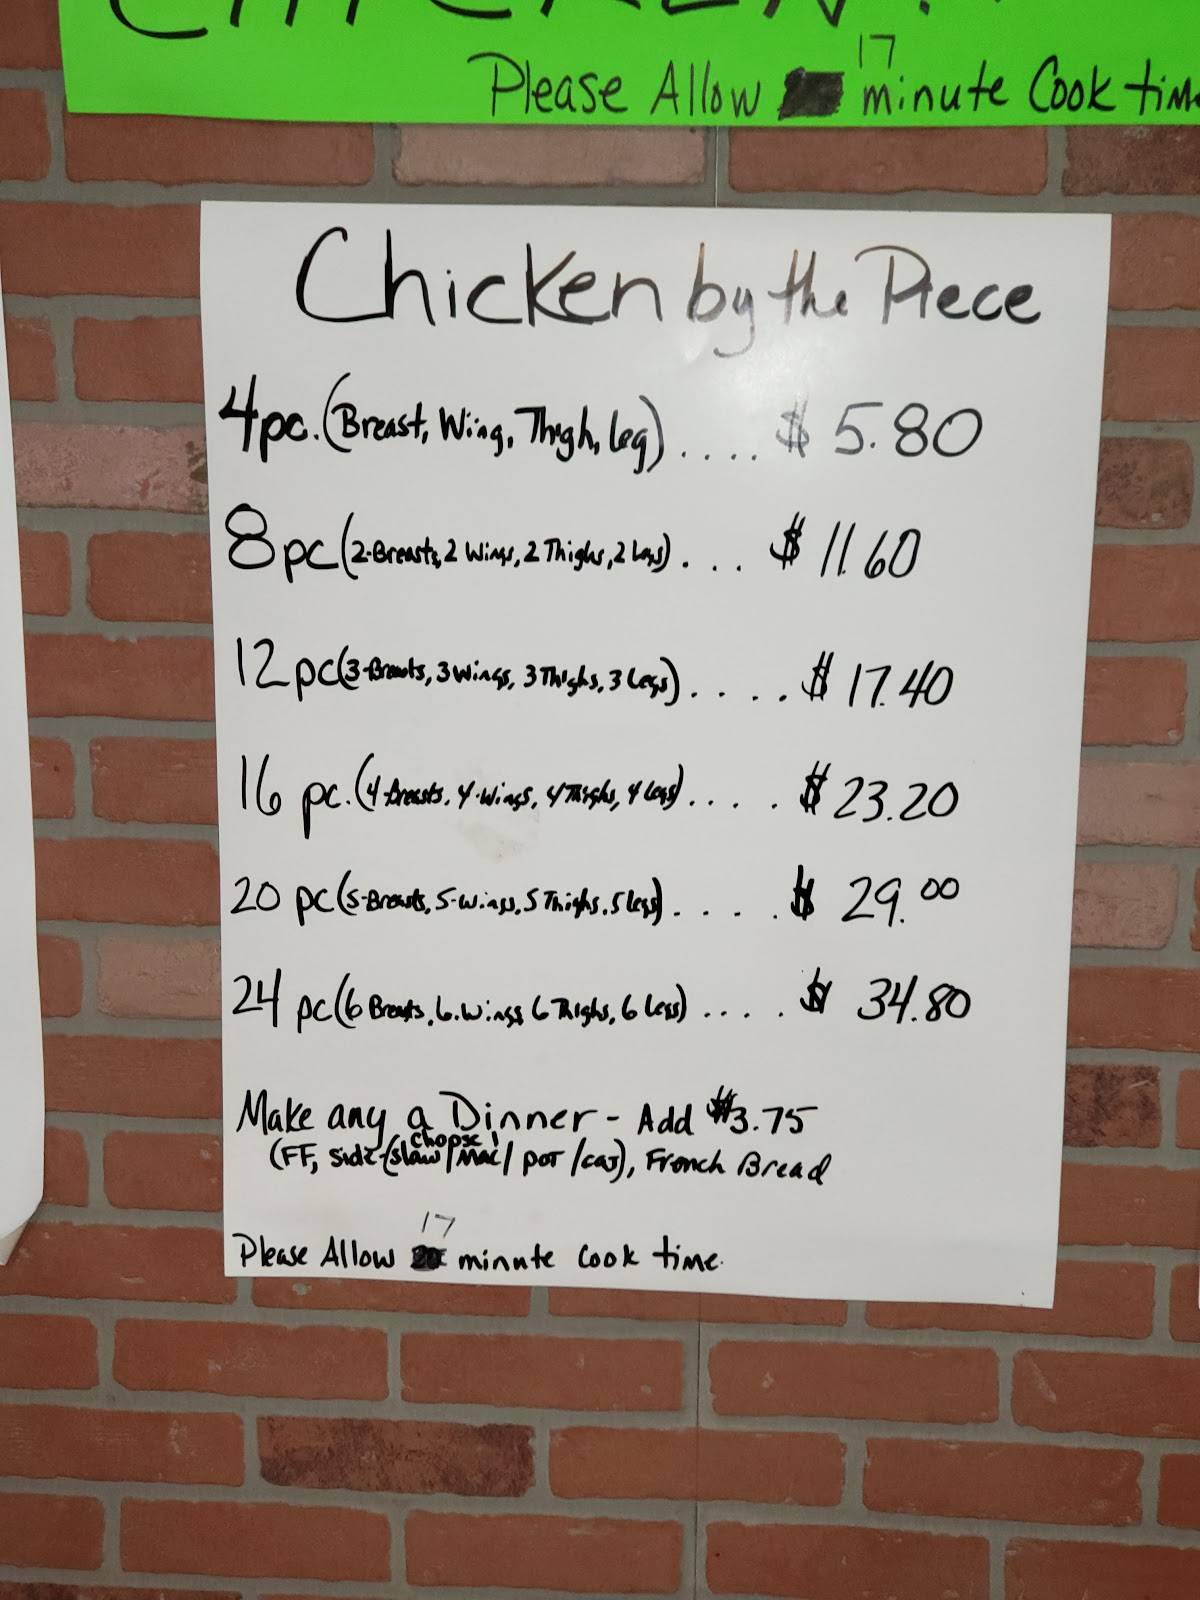 CHICKEN
17
Please Allow minute Cook time
Chicken by the Piece
4pc. (Breast, Wing, Thigh, Leg) .... $ 5.80
8pc (2-Breasts, 2 Wings, 2 Thighs, 2 Legs) . ... $ 11.60
12pc (3-Breasts, 3 Wings, 3 Thighs, 3 Legs) . . . . $ 17.40
16 pc. (4-Breasts, 4-Wings, 4 Thighs, 4 Legs) .... $ 23.20
20 pc (5-Breasts, 5-Wings, 5 Thighs, 5 Legs) . . . . $ 29.00
24 pc (6 Breasts, 6. Wings, 6 Thighs, 6 Legs) .... $ 34.80
Make any a Dinner - Add $3.75
choose 1
(FF, Side-(slaw/Mac/ POT/ ), French Bread
17
Please Allow minute Cook time.